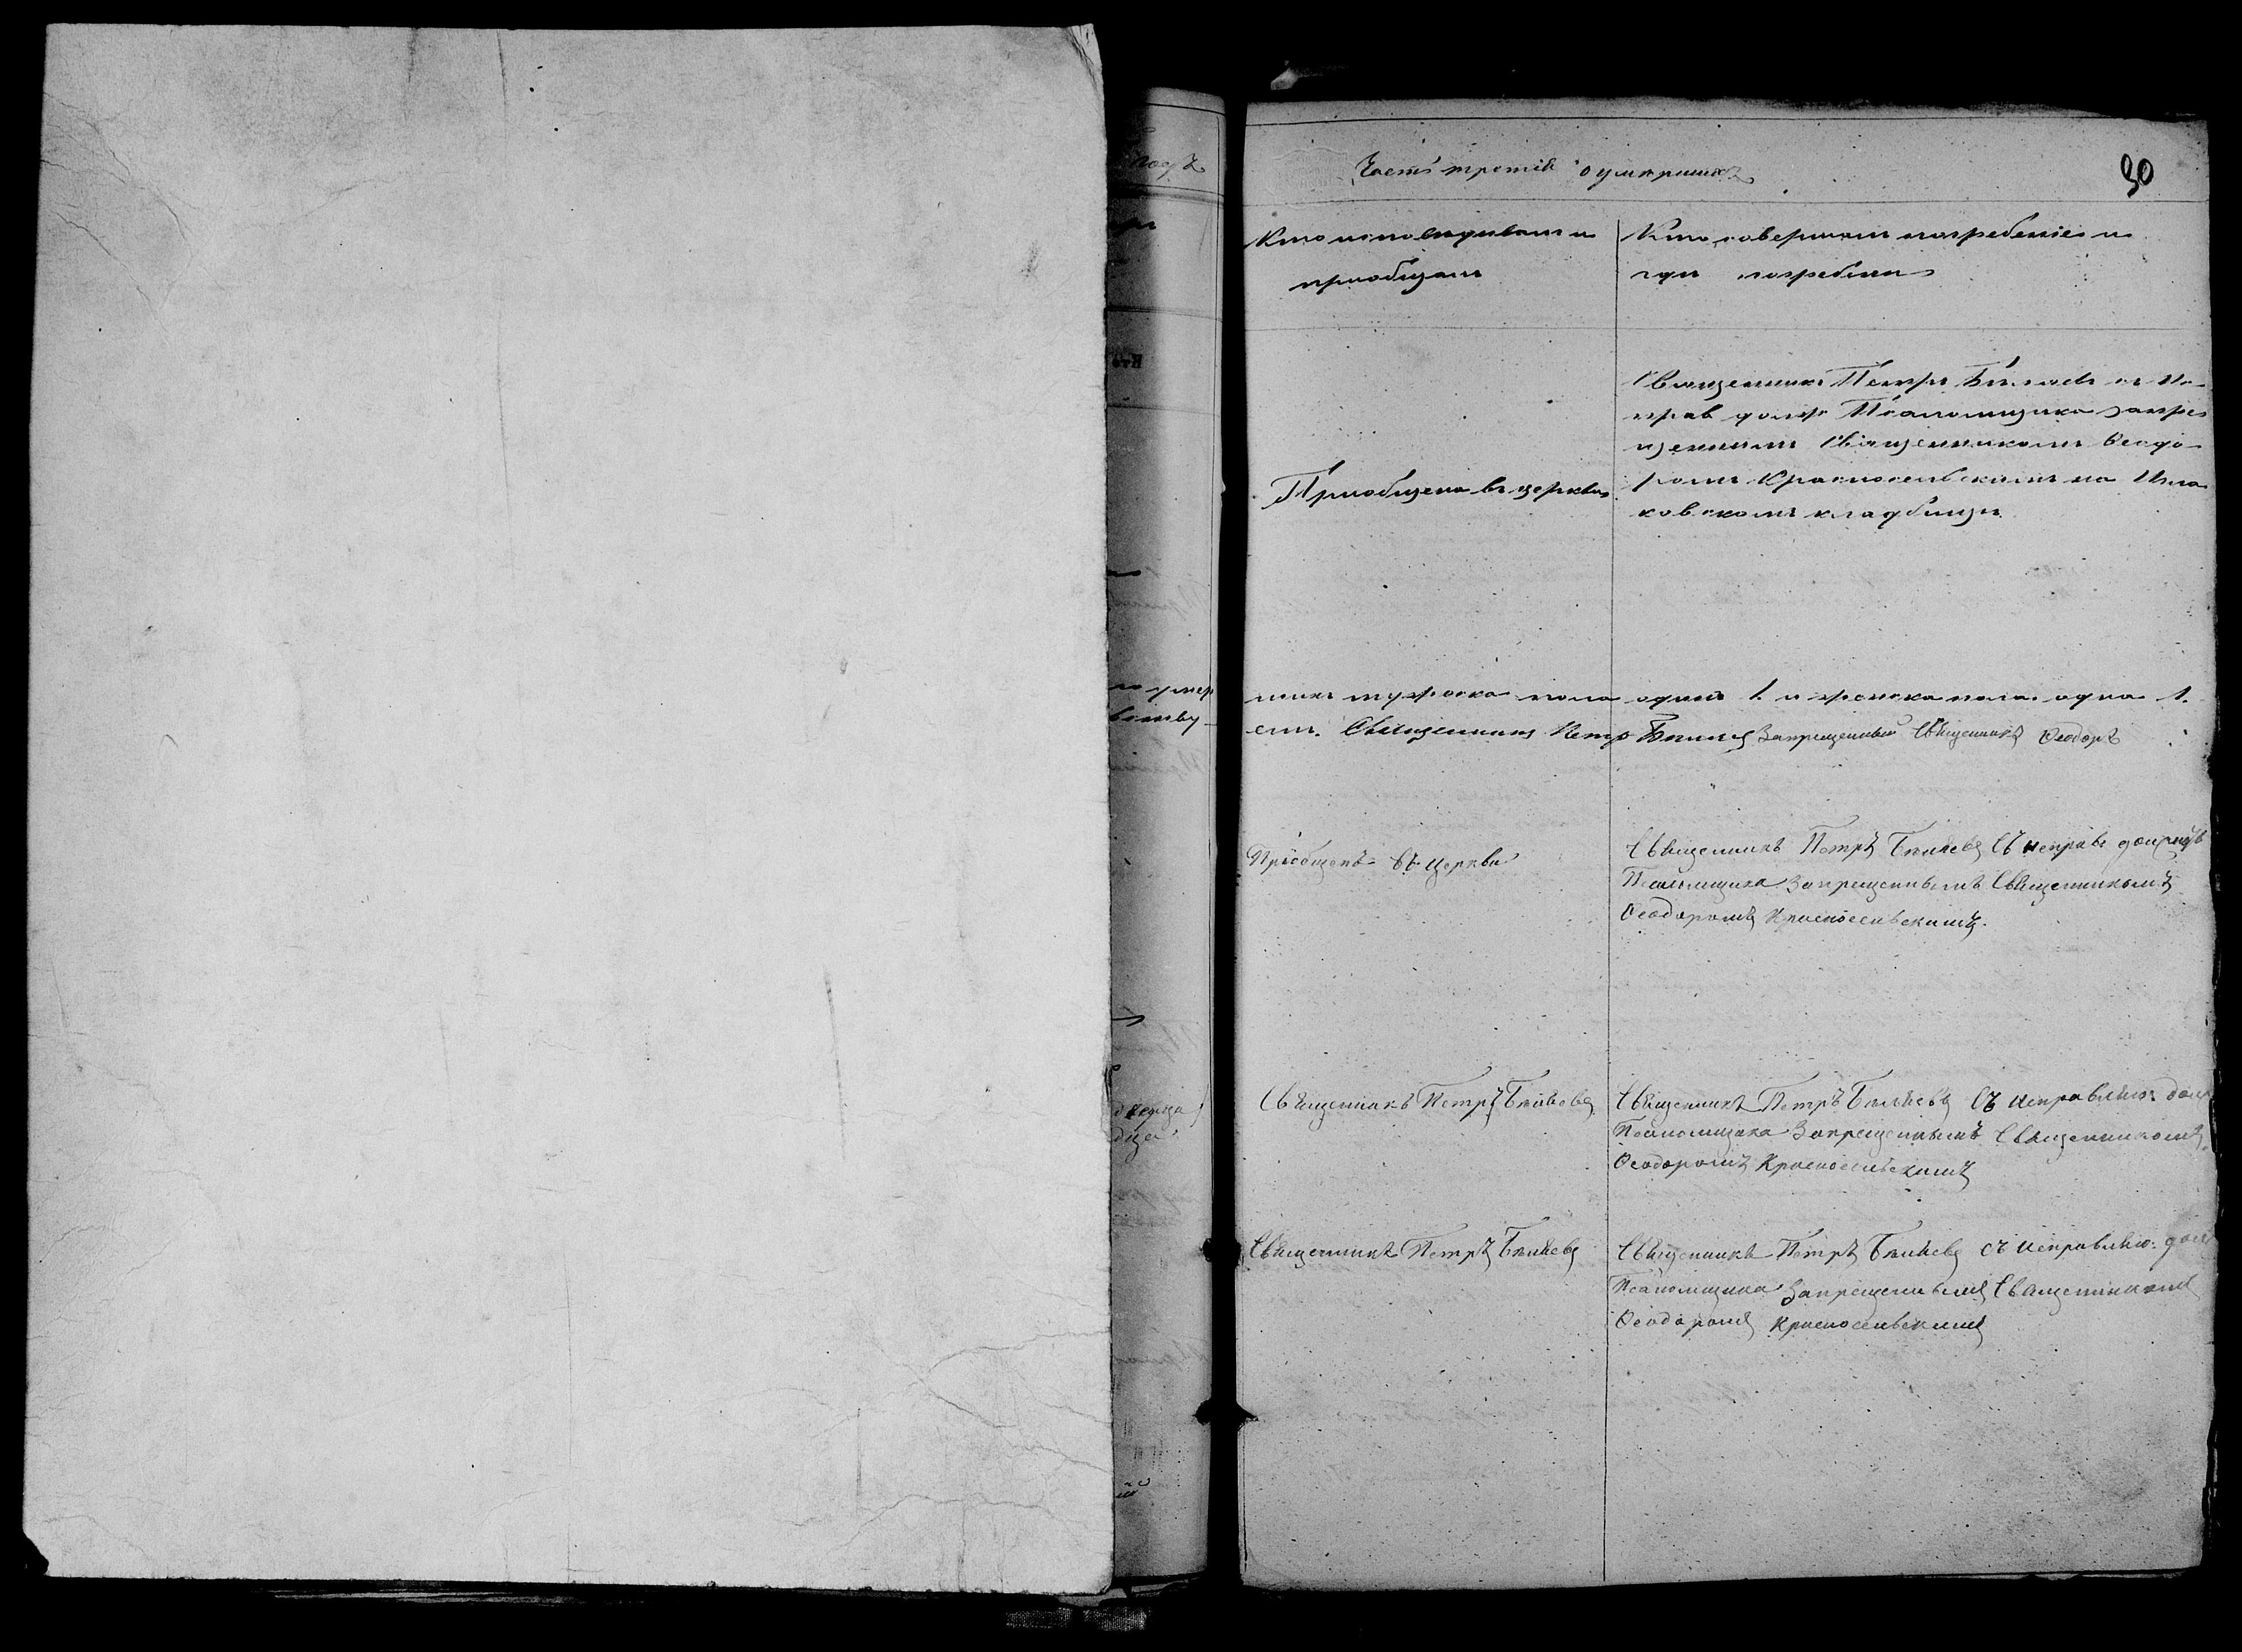 годъ
Часть третія о умершихъ
30
Кто исповѣдывалъ и
пріобщалъ
Кто совершалъ погребеніе и
гдѣ погребены
Кто
Пріобщена въ церкви
Священникъ Петръ Бѣляевъ съ Ис-
прав долж Псаломщика запре
щеннымъ Священникомъ Ѳеодо
ромъ Красносельскимъ на
ковскомъ кладбищѣ
умер
шихъ мужеска пола одинъ 1. и женска пола одна 1.
Священникъ Петръ Бѣляевъ Запрещенный Священникъ Ѳеодоръ
Пріобщенъ въ церкви
Священникъ Петръ Бѣляевъ Съ исправ должность
Псаломщика Запрещеннымъ Священникомъ
Ѳеодоромъ Красносельскимъ.
Священникъ Петръ Бѣляевъ
Священникъ Петръ Бѣляевъ Съ исправляю: долж
Псаломщика Запрещеннымъ Священникомъ
Ѳеодоромъ Красносельскимъ
Священникъ Петръ Бѣляевъ
Священникъ Петръ Бѣляевъ съ исправляю: долж
Псаломщика Запрещеннымъ Священникомъ
Ѳеодоромъ Красносельскимъ